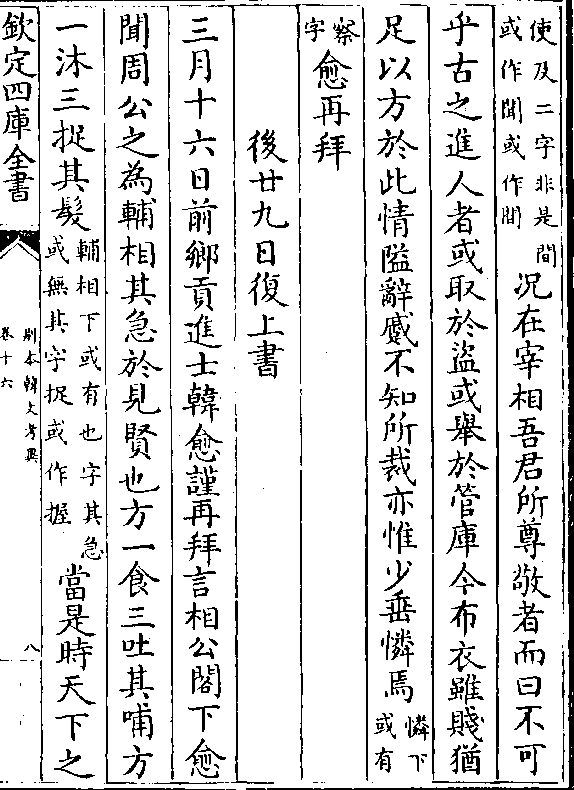 使及二字非是間
或作聞或作閒
况在宰相吾君所尊敬者而曰不可
乎古之進人者或取於盜或舉於管庫今布衣雖賤猶
足以方於此情隘辭慼不知所裁亦惟少垂憐焉
憐下
或有
察
字
愈再拜
後廿九日復上書
三月十六日前鄉貢進士韓愈謹再拜言相公閣下愈
聞周公之為輔相其急於見賢也方一食三吐其哺方
一沐三捉其髮
輔相下或有也字其急
或無其字捉或作握
當是時天下之
欽定四庫全書
別本韓文考異
卷十六
八